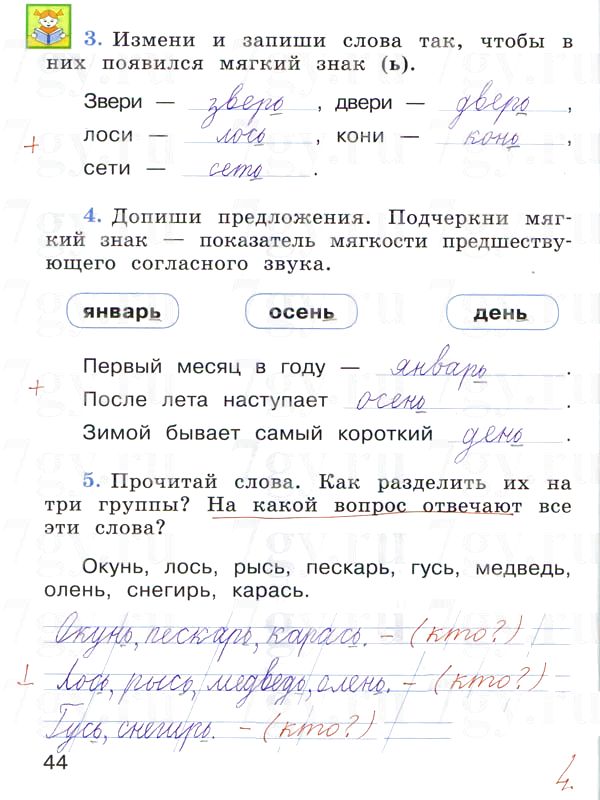 3. Измени и запиши слова так, чтобы в
них появился мягкий знак (ь).
Звери — зверь, двери — дверь,
+ лоси — лось, кони — конь,
сети — сеть.
4. Допиши предложения. Подчеркни мяг-
кий знак — показатель мягкости предшеству-
ющего согласного звука.
январь осень день
Первый месяц в году — январь.
+ После лета наступает осень.
Зимой бывает самый короткий день.
5. Прочитай слова. Как разделить их на
три группы? На какой вопрос отвечают все
эти слова?
Окунь, лось, рысь, пескарь, гусь, медведь,
олень, снегирь, карась.
Окунь, пескарь, карась. – (кто?)
Лось, рысь, медведь, олень. – (кто?)
Гусь, снегирь. – (кто?)
44
4.
7gy.ru